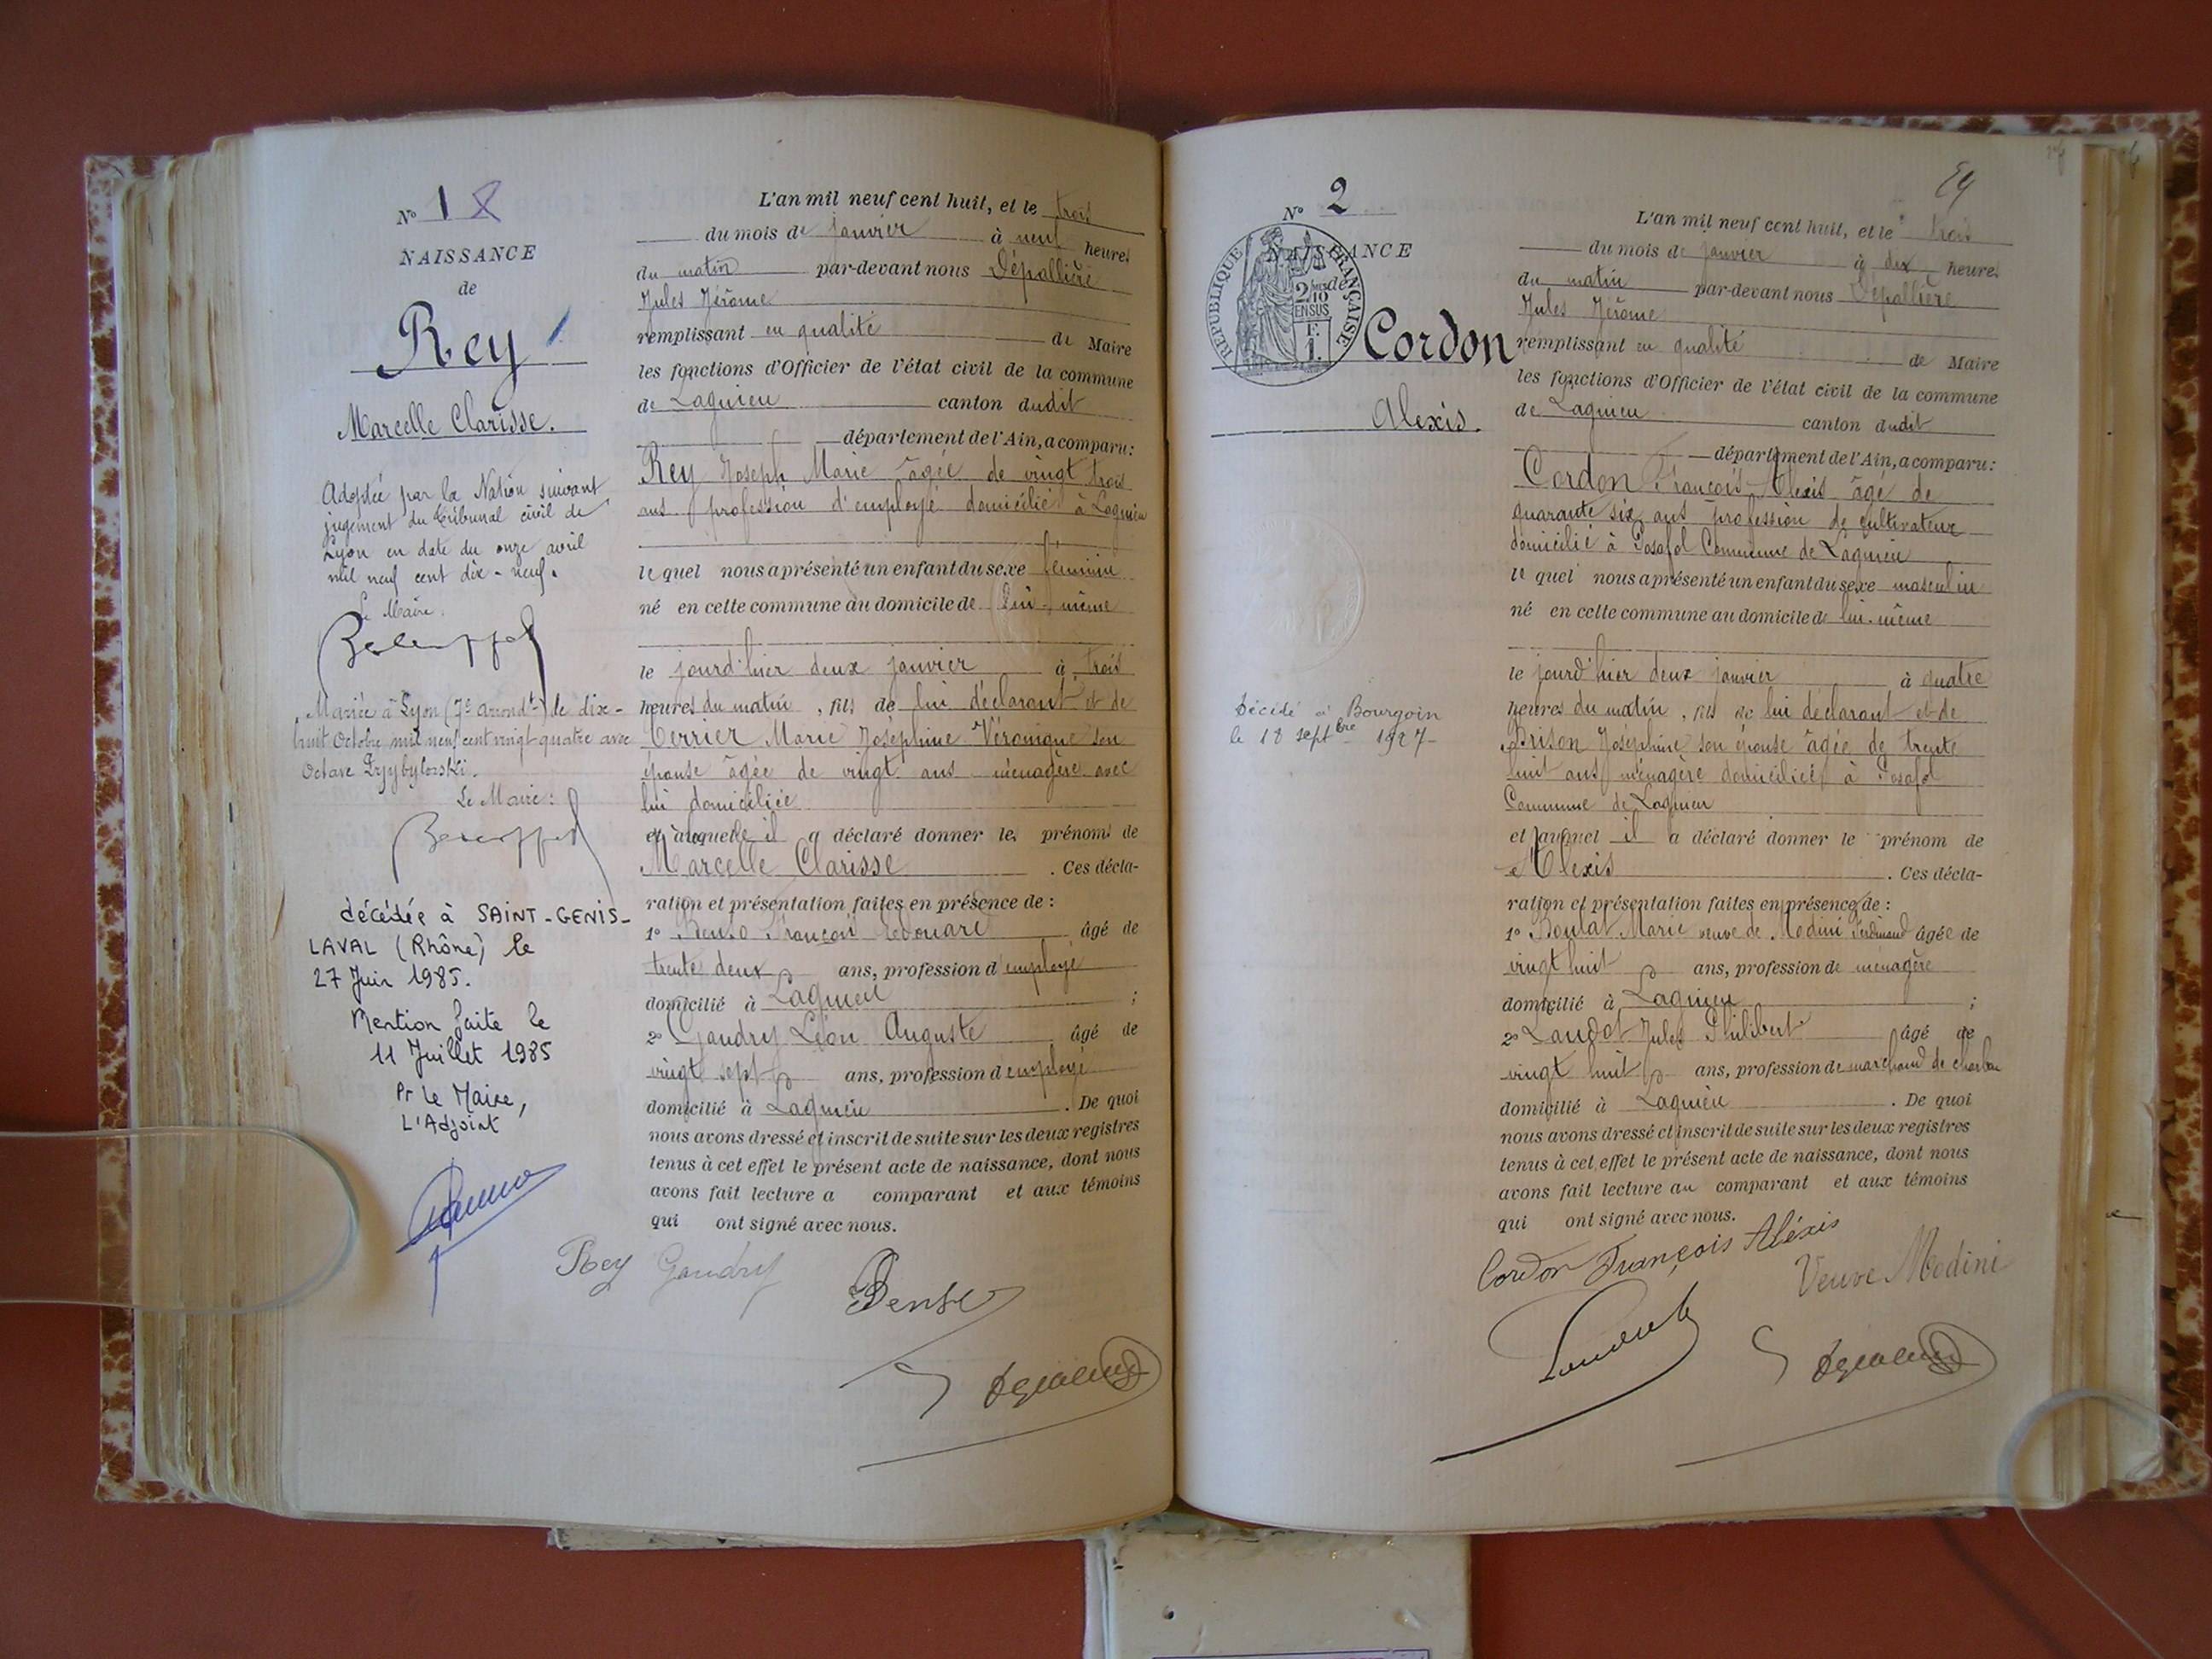 N° 1 8
NAISSANCE
de
Rey
Marcelle Clarisse.
Adoptée par la Nation suivant
jugement du tribunal civil de
Lyon en date du onze avril
mil neuf cent dix-neuf.
Le Maire.
Mariée à Lyon (7e arrondt) le dix-
huit Octobre mil neuf cent vingt quatre avec
Octave
Le Maire:
décédée à SAINT-GENIS-
LAVAL (Rhône) le
27 Juin 1985.
Mention faite le
11 Juillet 1985
Pr le Maire,
L'Adjoint
L'an mil neuf cent huit, et le trois
du mois de janvier à neuf heures
du matin par-devant nous Dépallière
Jules Jérôme
remplissant en qualité de Maire
les fonctions d'Officier de l'état civil de la commune
de Lagnieu canton dudit
département de l'Ain, a comparu:
Rey Joseph Marie âgée de vingt trois
ans profession d'employé domicilié à Lagnieu
le quel nous a présenté un enfant du sexe féminin
né en cette commune au domicile de lui-même
le jourd'hier deux janvier à trois
heures du matin, fils de lui déclarant et de
Terrier Marie Joséphine Véronique son
épouse âgée de vingt ans ménagère avec
lui domiciliée
et à laquelle il a déclaré donner les prénoms de
Marcelle Clarisse. Ces décla-
ration et présentation faites en présence de :
1° François Edouard âgé de
trente deux ans, profession d'employé
domicilié à Lagnieu ;
2° Gaudry Léon Auguste âgé de
vingt sept ans, profession d'employé
domicilié à Lagnieu. De quoi
nous avons dressé et inscrit de suite sur les deux registres
tenus à cet effet le présent acte de naissance, dont nous
avons fait lecture a comparant et aux témoins
qui ont signé avec nous.
Rey Gaudry
N° 2
NAISSANCE
de
RÉPUBLIQUE FRANÇAISE
2/10 EN SUS
F. 1.
Cordon
Alexis.
Décédé à Bourgoin
le 18 septbre 1927-
L'an mil neuf cent huit, et le trois
du mois de janvier à dix heures
du matin par-devant nous Dépallière
Jules Jérôme
remplissant en qualité de Maire
les fonctions d'Officier de l'état civil de la commune
de Lagnieu canton dudit
département de l'Ain, a comparu:
Cordon François Alexis âgé de
quarante six ans profession de cultivateur
domicilié à Posafol Commune de Lagnieu
le quel nous a présenté un enfant du sexe masculin
né en cette commune au domicile de lui-même
le jourd'hier deux janvier à quatre
heures du matin, fils de lui déclarant et de
Brison Joséphine son épouse âgée de trente
huit ans ménagère domiciliée à Posafol
Commune de Lagnieu
et auquel il a déclaré donner le prénom de
Alexis. Ces décla-
ration et présentation faites en présence de :
1° Boulat Marie veuve de Modini Ferdinand âgée de
vingt huit ans, profession de ménagère
domicilié à Lagnieu ;
2° Jules Philibert âgé de
vingt huit ans, profession de marchand de charbon
domicilié à Lagnieu. De quoi
nous avons dressé et inscrit de suite sur les deux registres
tenus à cet effet le présent acte de naissance, dont nous
avons fait lecture au comparant et aux témoins
qui ont signé avec nous.
Cordon François Aléxis
Veuve Modini